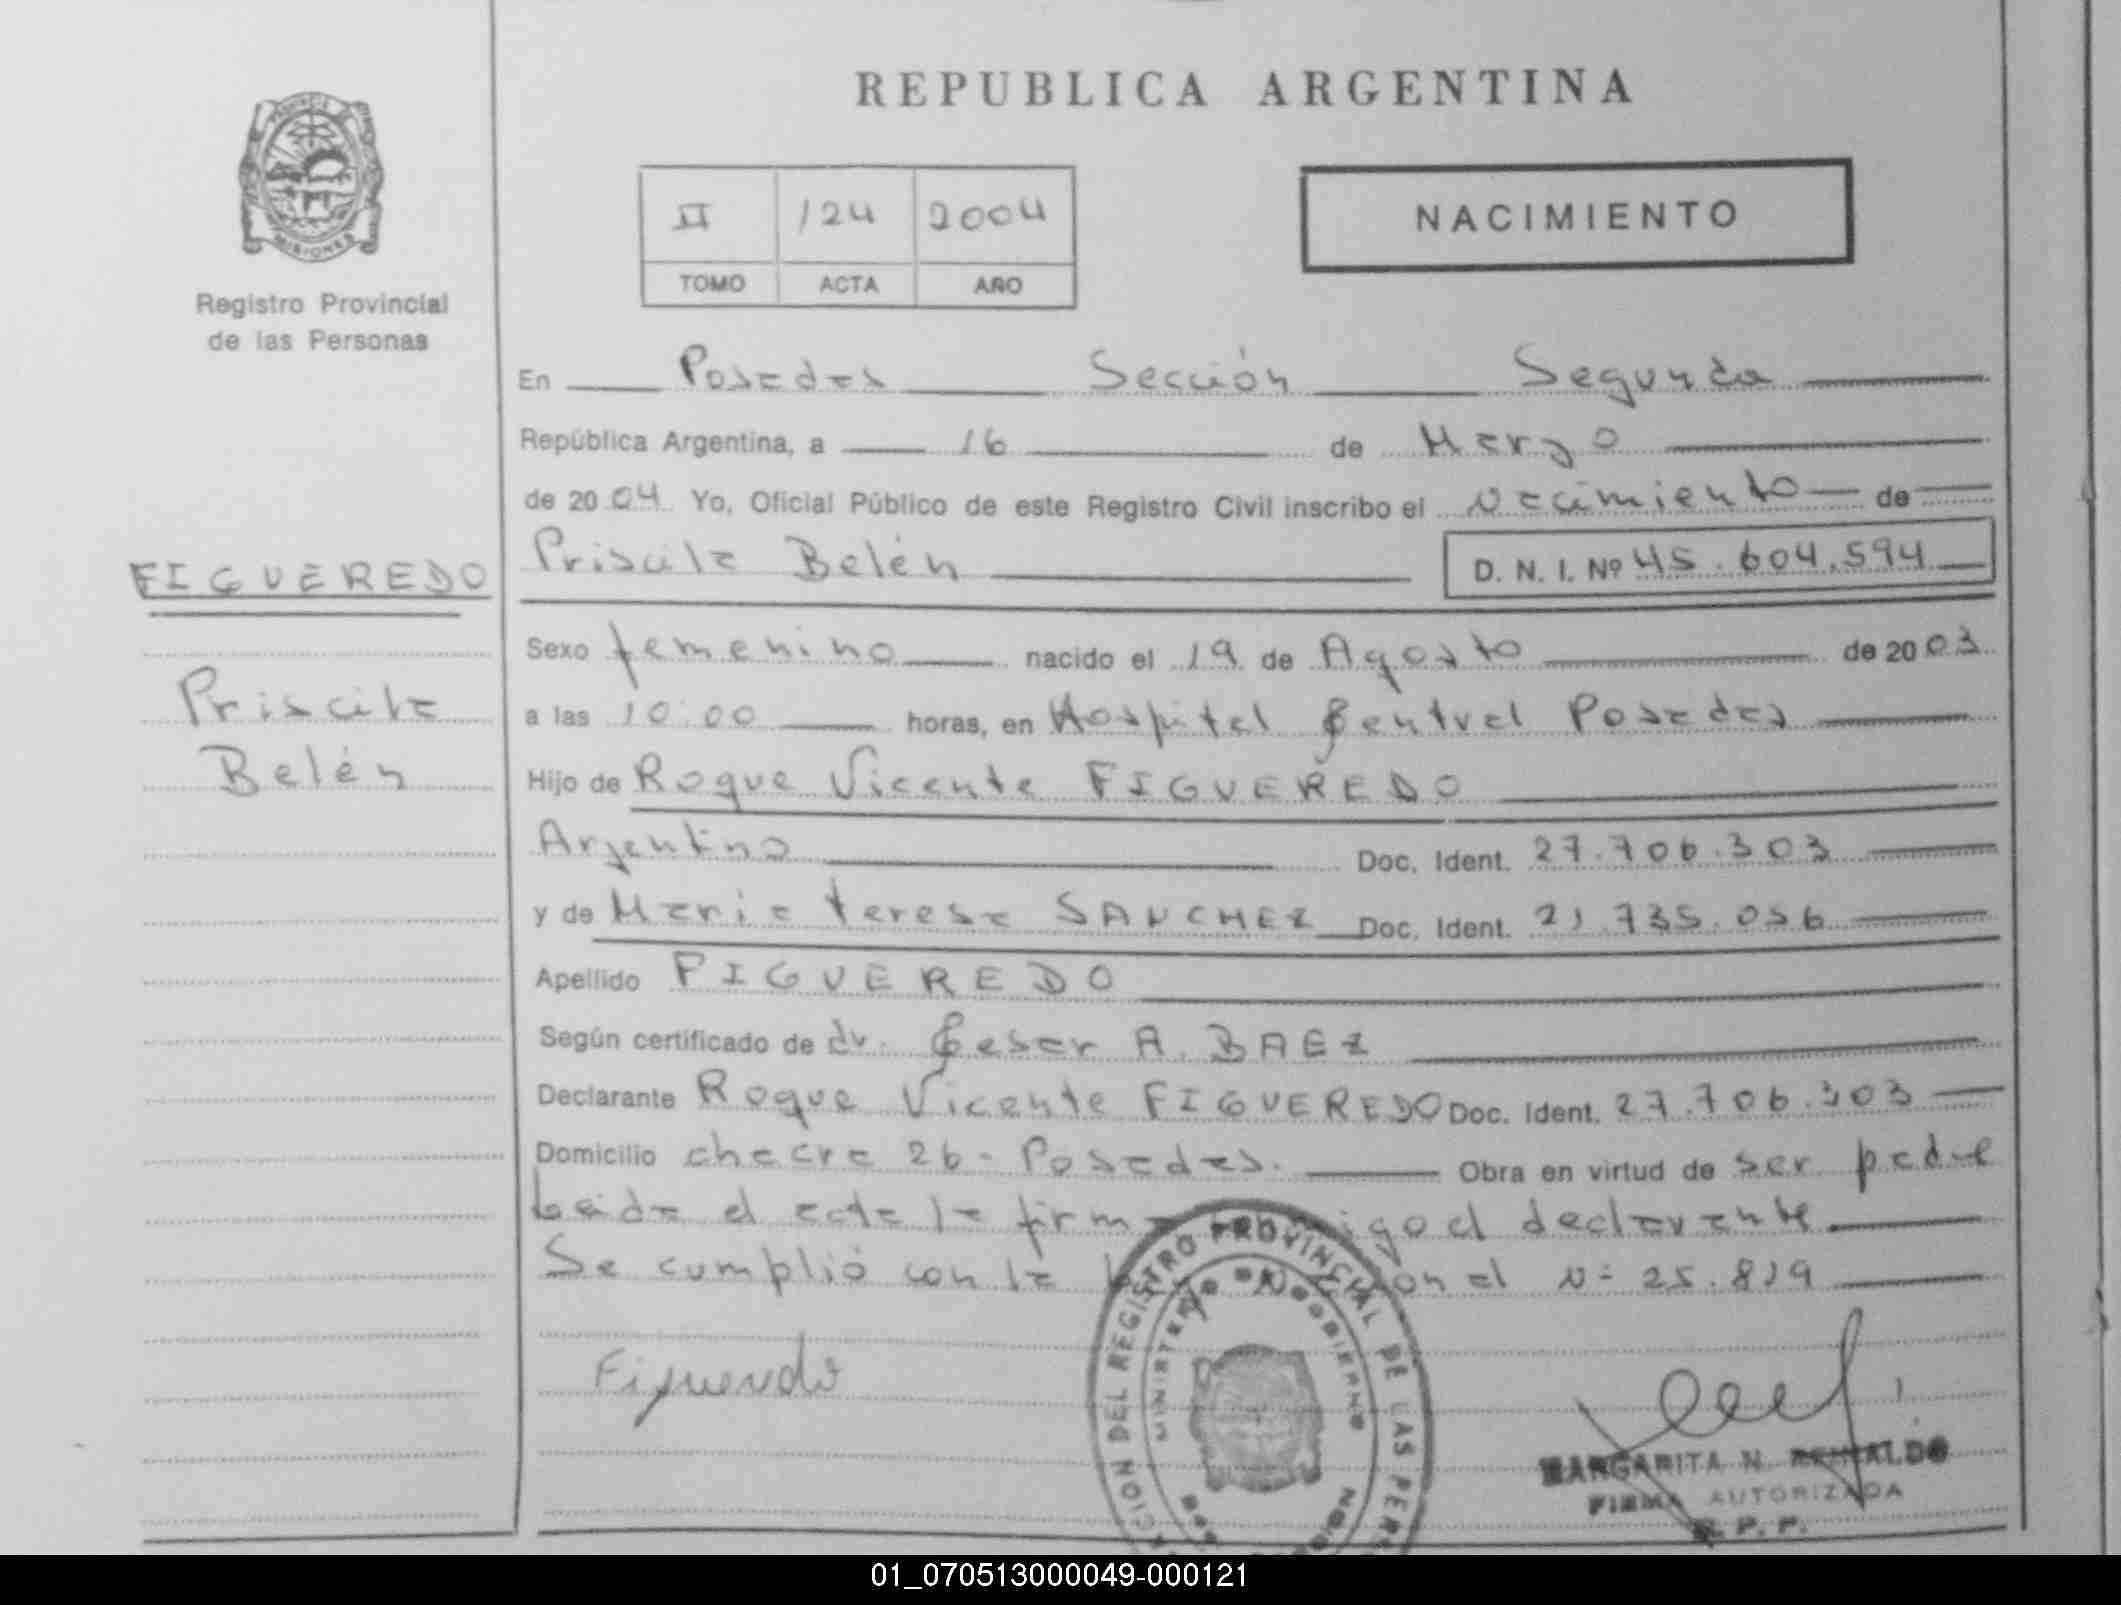 REPUBLICA ARGENTINA
PROVINCIA
MISIONES
Registro Provincial
de las Personas
II 124 2004
TOMO ACTA AÑO
NACIMIENTO
En Posadas Sección Segunda
República Argentina, a 16 de Marzo
de 2004 Yo, Oficial Público de este Registro Civil inscribo el nacimiento de
Priscila Belén D. N. I. Nº 45.604.594
FIGUEREDO
Priscila
Belén
Sexo femenino nacido el 19 de Agosto de 2003
a las 10:00 horas, en Hospital Central Posadas
Hijo de Roque Vicente FIGUEREDO
Argentino Doc. Ident. 27.706.303
y de Maria teresa SANCHEZ Doc. Ident. 21.735.056
Apellido FIGUEREDO
Según certificado de dr. Cesar A. BAEZ
Declarante Roque Vicente FIGUEREDO Doc. Ident. 27.706.303
Domicilio chacra 26 - Posadas. Obra en virtud de ser padre
Leida el acta la firma el declarante
Se cumplió con la Nacional Nº 25.819
Figueredo
DEL REGISTRO PROVINCIAL DE LAS
MINISTERIO DE GOBIERNO
MARGARITA N. REINALDO
FIRMA AUTORIZADA
R. P. P.
01_070513000049-000121